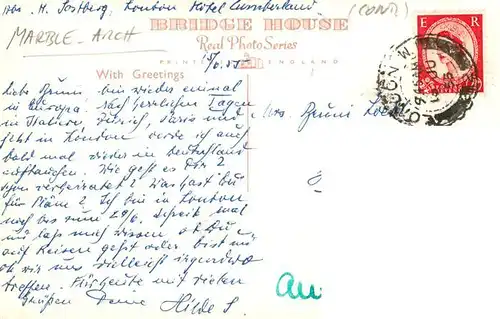 Abs. H. Jostberg, London Hotel Cumberland
(CONT.)
MARBLE-ARCH
BRIDGE HOUSE
Real Photo Series
PRINTED ENGLAND
E R
With Greetings
Liebe Bruni bin wieder einmal
in Europa. Nach herrlichen Tagen
in Italien, Zürich, Paris und
jetzt in London werde ich auch
bald mal wieder in Deutschland
auftauchen. Wie geht es Dir?
Schon verheiratet? Was hast Du
für Pläne? Ich bin in London
noch bis zum 20/6. Schreib mal
und lass mich wissen ob Du
auf Reisen gehst oder bist und
ob wir uns vielleicht irgendwo
treffen. Für heute mit vielen
Grüßen Deine Hilde S.
Mrs. Bruni
An